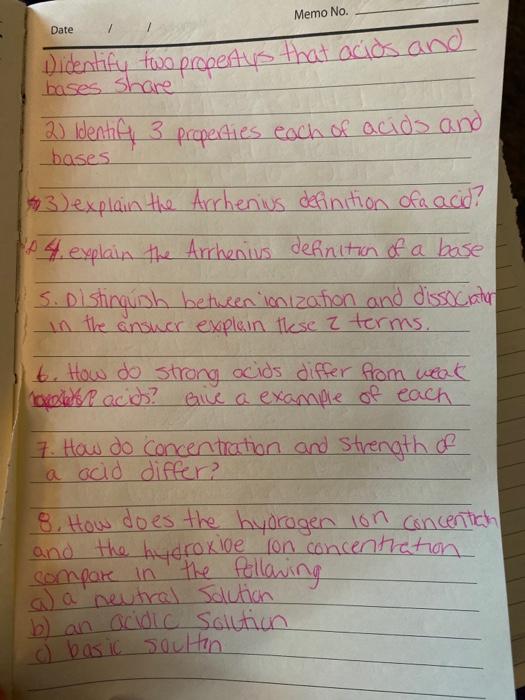 Memo No.
Date / /
1) identify two propertys that acids and
bases share
2) Identify 3 properties each of acids and
bases
3) explain the Arrhenius definition of a acid?
4. explain the Arrhenius definition of a base
5. Distinguish between ionization and dissociation
in the answer explain these 2 terms.
6. How do strong acids differ from weak
acids? Give a example of each
7. How do concentration and strength of
a acid differ?
8. How does the hydrogen ion concentration
and the hydroxide ion concentration
compare in the following
a) a neutral solution
b) an acidic solution
c) basic soultin